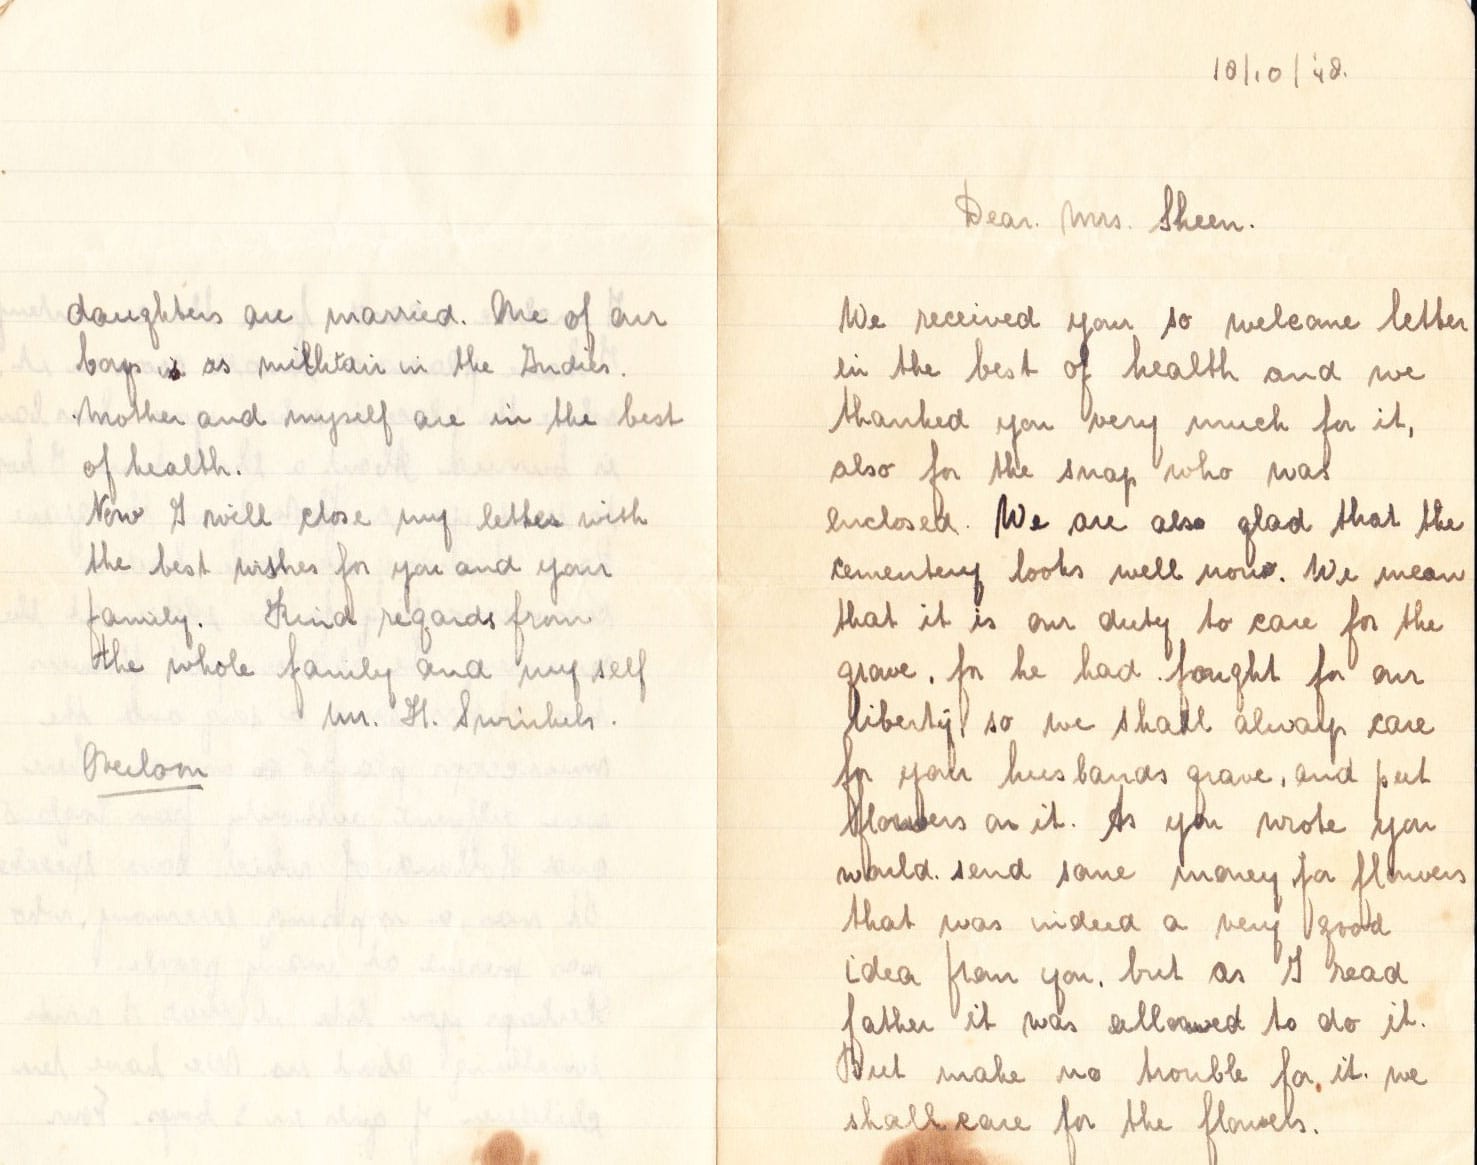 18/10/'48.
Dear. Mrs. Sheen.
We received your so welcome letter
in the best of health and we
thanked you very much for it,
also for the snap who was
enclosed. We are also glad that the
cementery looks well now. We mean
that it is our duty to care for the
grave, for he had fought for our
liberty, so we shall always care
for your husbands grave, and put
flowers on it. As you wrote you
would. send some money for flowers
that was indeed a very good
idea from you, but as I read
father it was allowed to do it.
But make no trouble for it. we
shall care for the flowers.
daughters are married. One of our
boys is as militair in the Indies.
Mother and myself are in the best
of health.
Now I will close my letter with
the best wishes for you and your
family. Kind regards from
the whole family and my self
mr. H. Swinkels.
Overloon